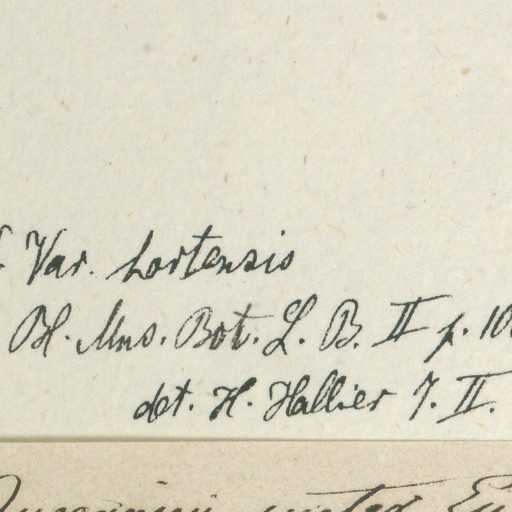 Var. hortensis
Bl. Mus. Bot. L. B. II p. 10
det. H. Hallier 7. II.